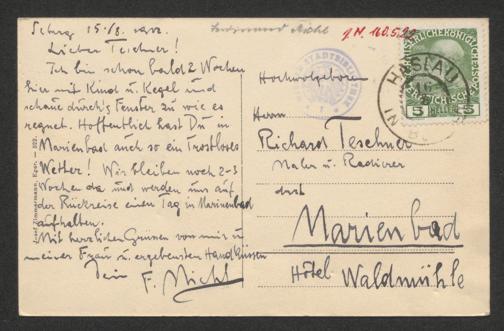 15./8.
Lieber Teschner!
Ich bin schon bald 2 Wochen
hier mit Kind u. Kegel und
schaue durch's Fenster zu wie es
regnet. Hoffentlich hast Du in
Marienbad auch so ein trostloses
Wetter! Wir bleiben noch 2-3
Wochen da und werden uns auf
der Rückreise einen Tag in Marienbad
aufhalten.
Mit herzlichen Grüssen von mir u.
meiner Frau u. ergebensten Handküssen
Dein F. Michl
Josef Zimmermann, Eger. — 322.
Ferdinand Michl
STADTBIBLIOTHEK
HASLAU
5 5
Hochwolgeboren
Herrn
Richard Teschner
Maler u. Radierer
dzt
Marienbad
Hôtel Waldmühle